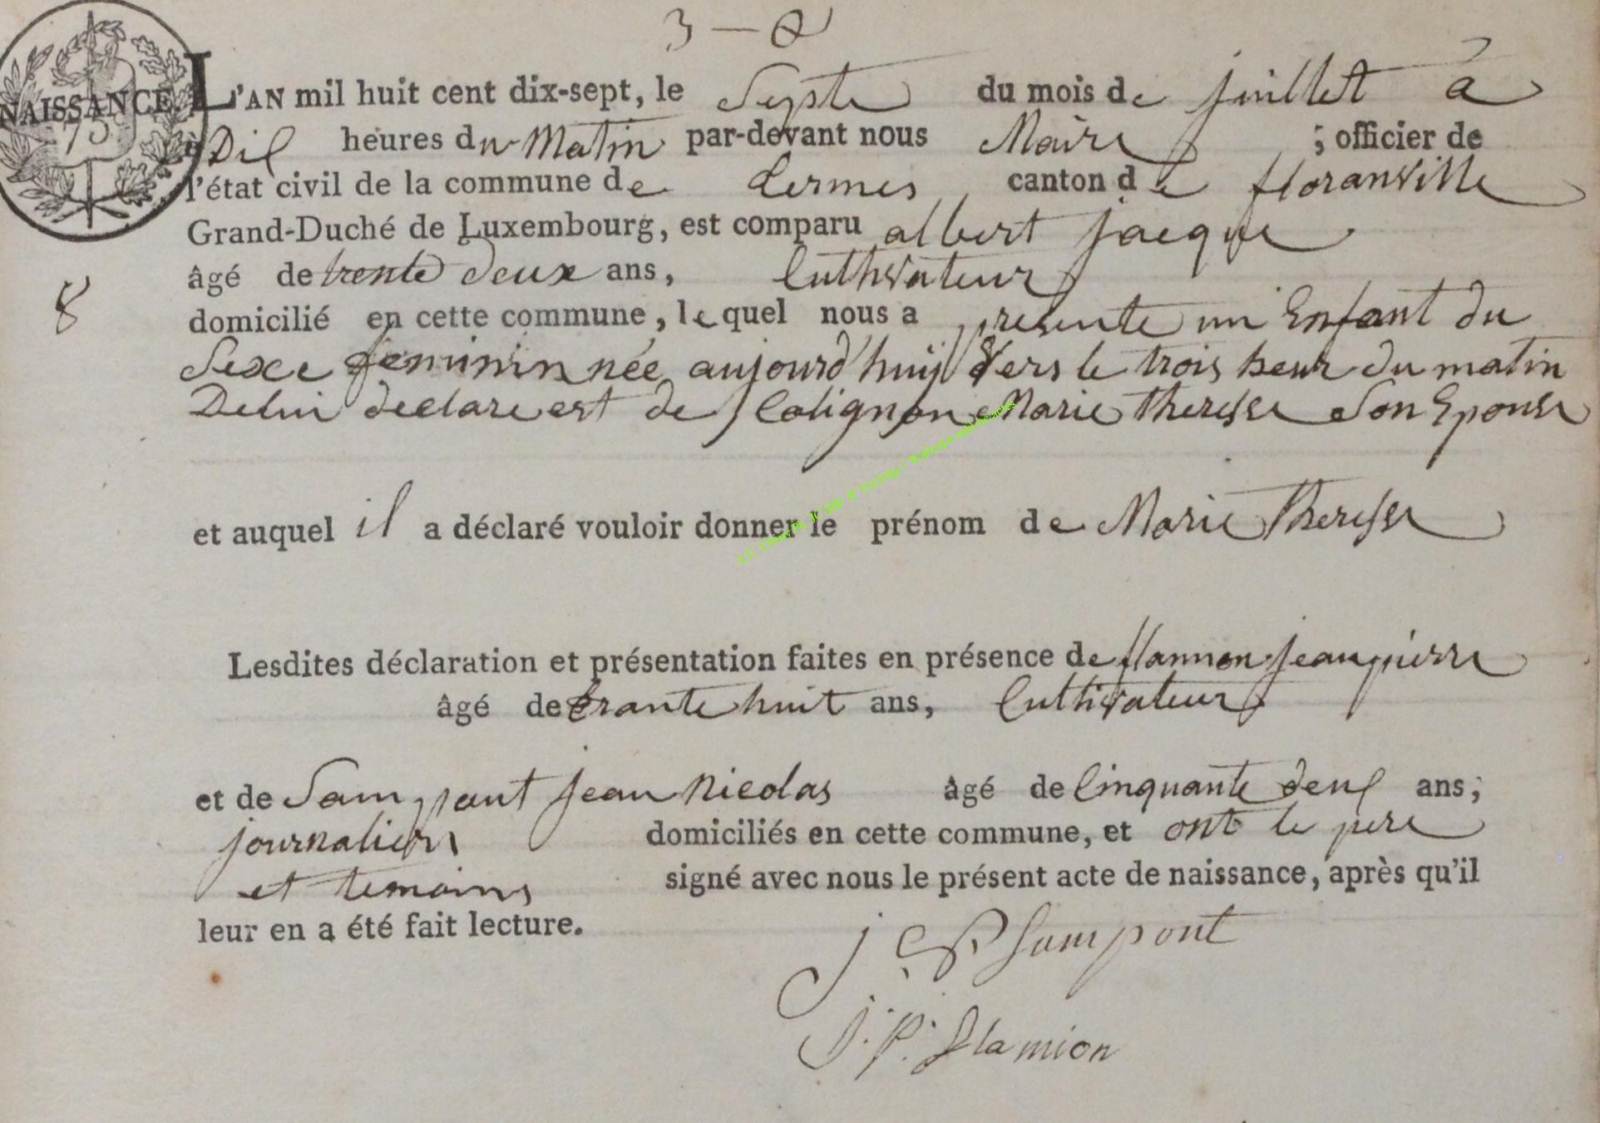 3 — 8
NAISSANCE
75
L'AN mil huit cent dix-sept, le Septe du mois de juillet à
à Dix heures du Matin par-devant nous Maire ; officier de
l'état civil de la commune de termes canton de floranville
Grand-Duché de Luxembourg, est comparu albert jacque
âgé de trente deux ans, Cultivateur
8
domicilié en cette commune, lequel nous a presente un Enfant du
Sexe feminin née aujourd'huij vers le trois heur du matin
De lui declare est de Colignon Marie Theresse Son Epouse
et auquel il a déclaré vouloir donner le prénom de Marie Theresse
Lesdites déclaration et présentation faites en présence de flamion jean pierre
âgé de trante huit ans, Cultivateur
et de Sampont jean Nicolas âgé de Cinquante deux ans;
journalier domiciliés en cette commune, et ont le pere
et temoins signé avec nous le présent acte de naissance, après qu'il
leur en a été fait lecture.
Sampont
J. P. flamion